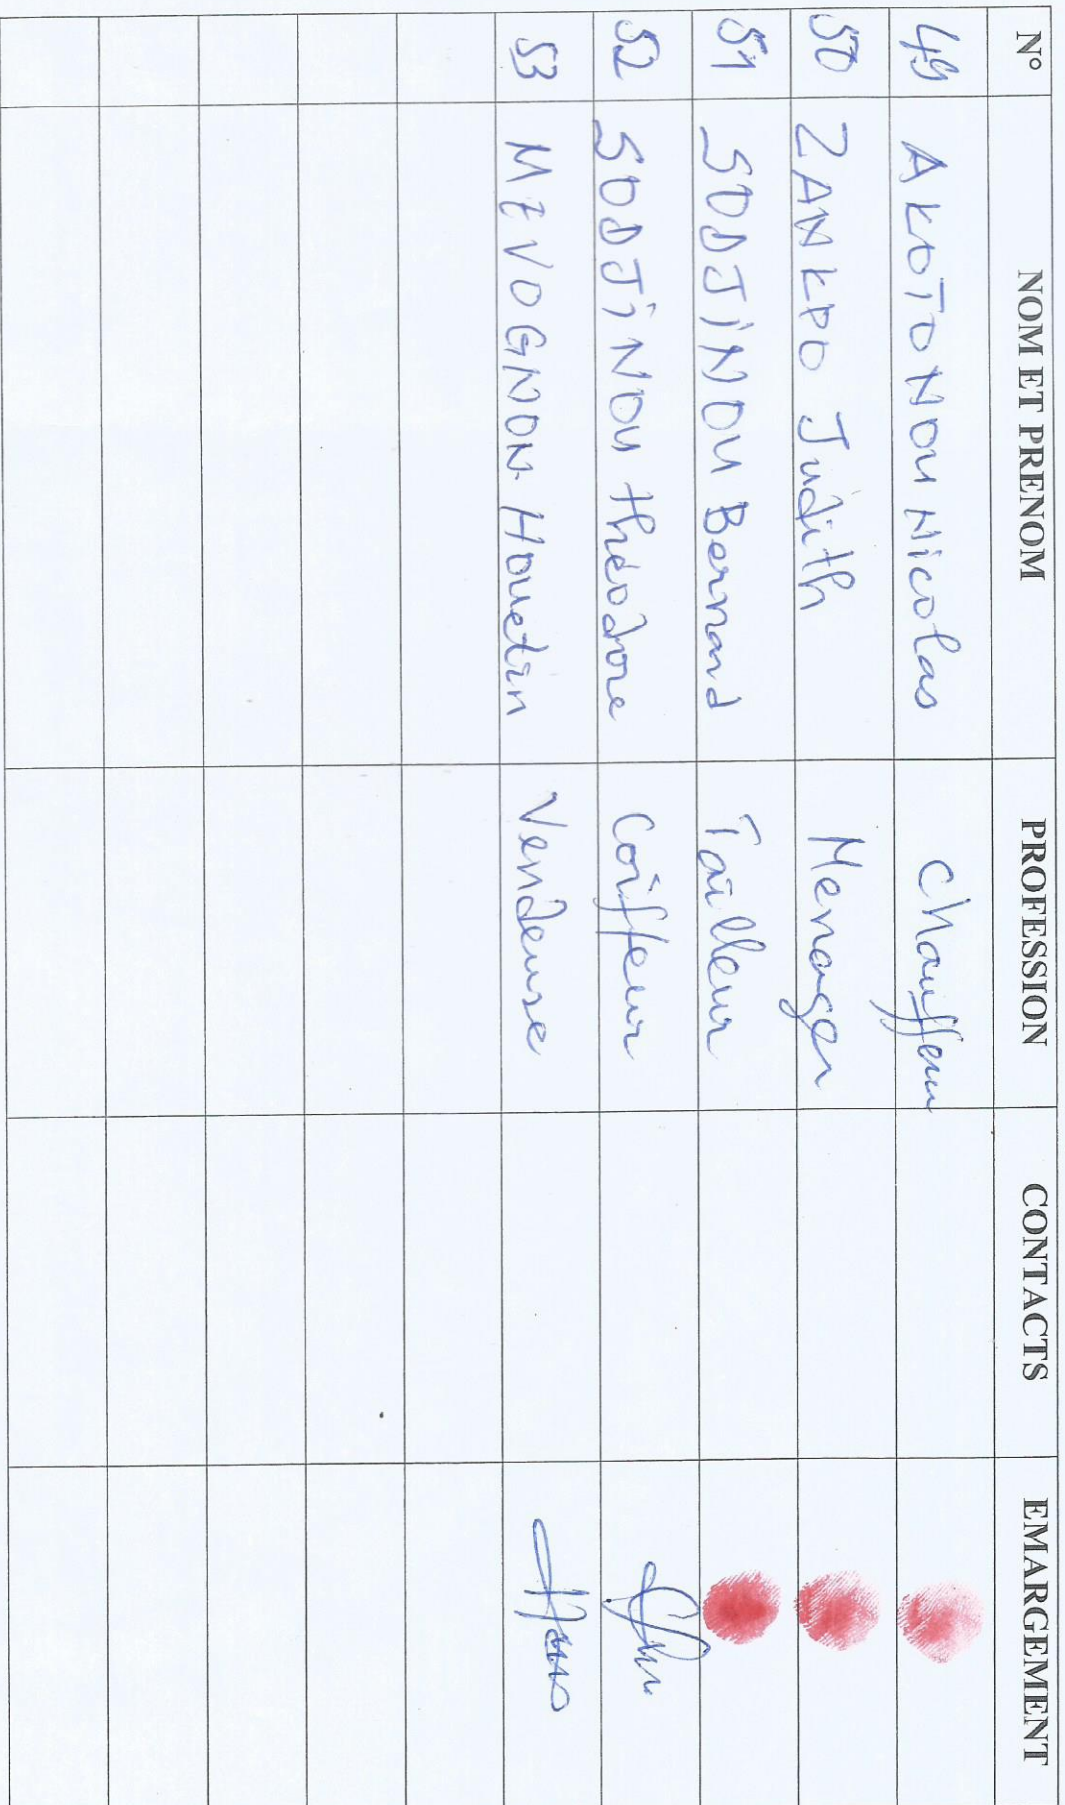 N° NOM ET PRENOM PROFESSION CONTACTS EMARGEMENT
49 AKOTONOU Nicolas Chauffeur
50 ZANKPO Judith Menager
51 SODJINOU Bernard Tailleur
52 SODJINOU théodore Coiffeur
53 MEVOGNON Houetin Vendeuse